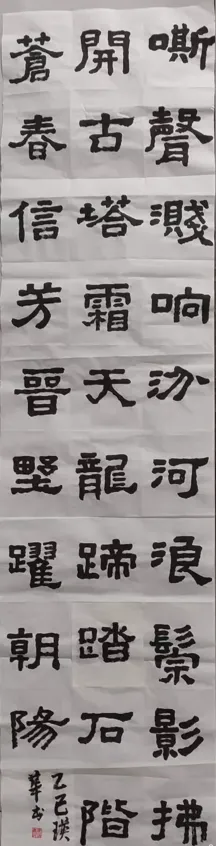 嘶聲濺响汾河浪鬃影拂
開古塔霜天龍蹄踏石階
蒼春信芳晉墅躍朝陽
乙巳瑛
華书